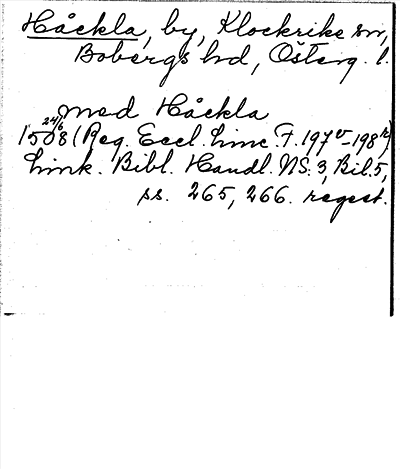 Håckla, by, Klockrike sn,
Bobergs hd, Österg. l.
med Håckla
24/6
1508 (Reg. Eccl. Linc. F. 197v-198r)
Link. Bibl. Handl. NS. 3, Bil. 5,
ss. 265, 266. regest.